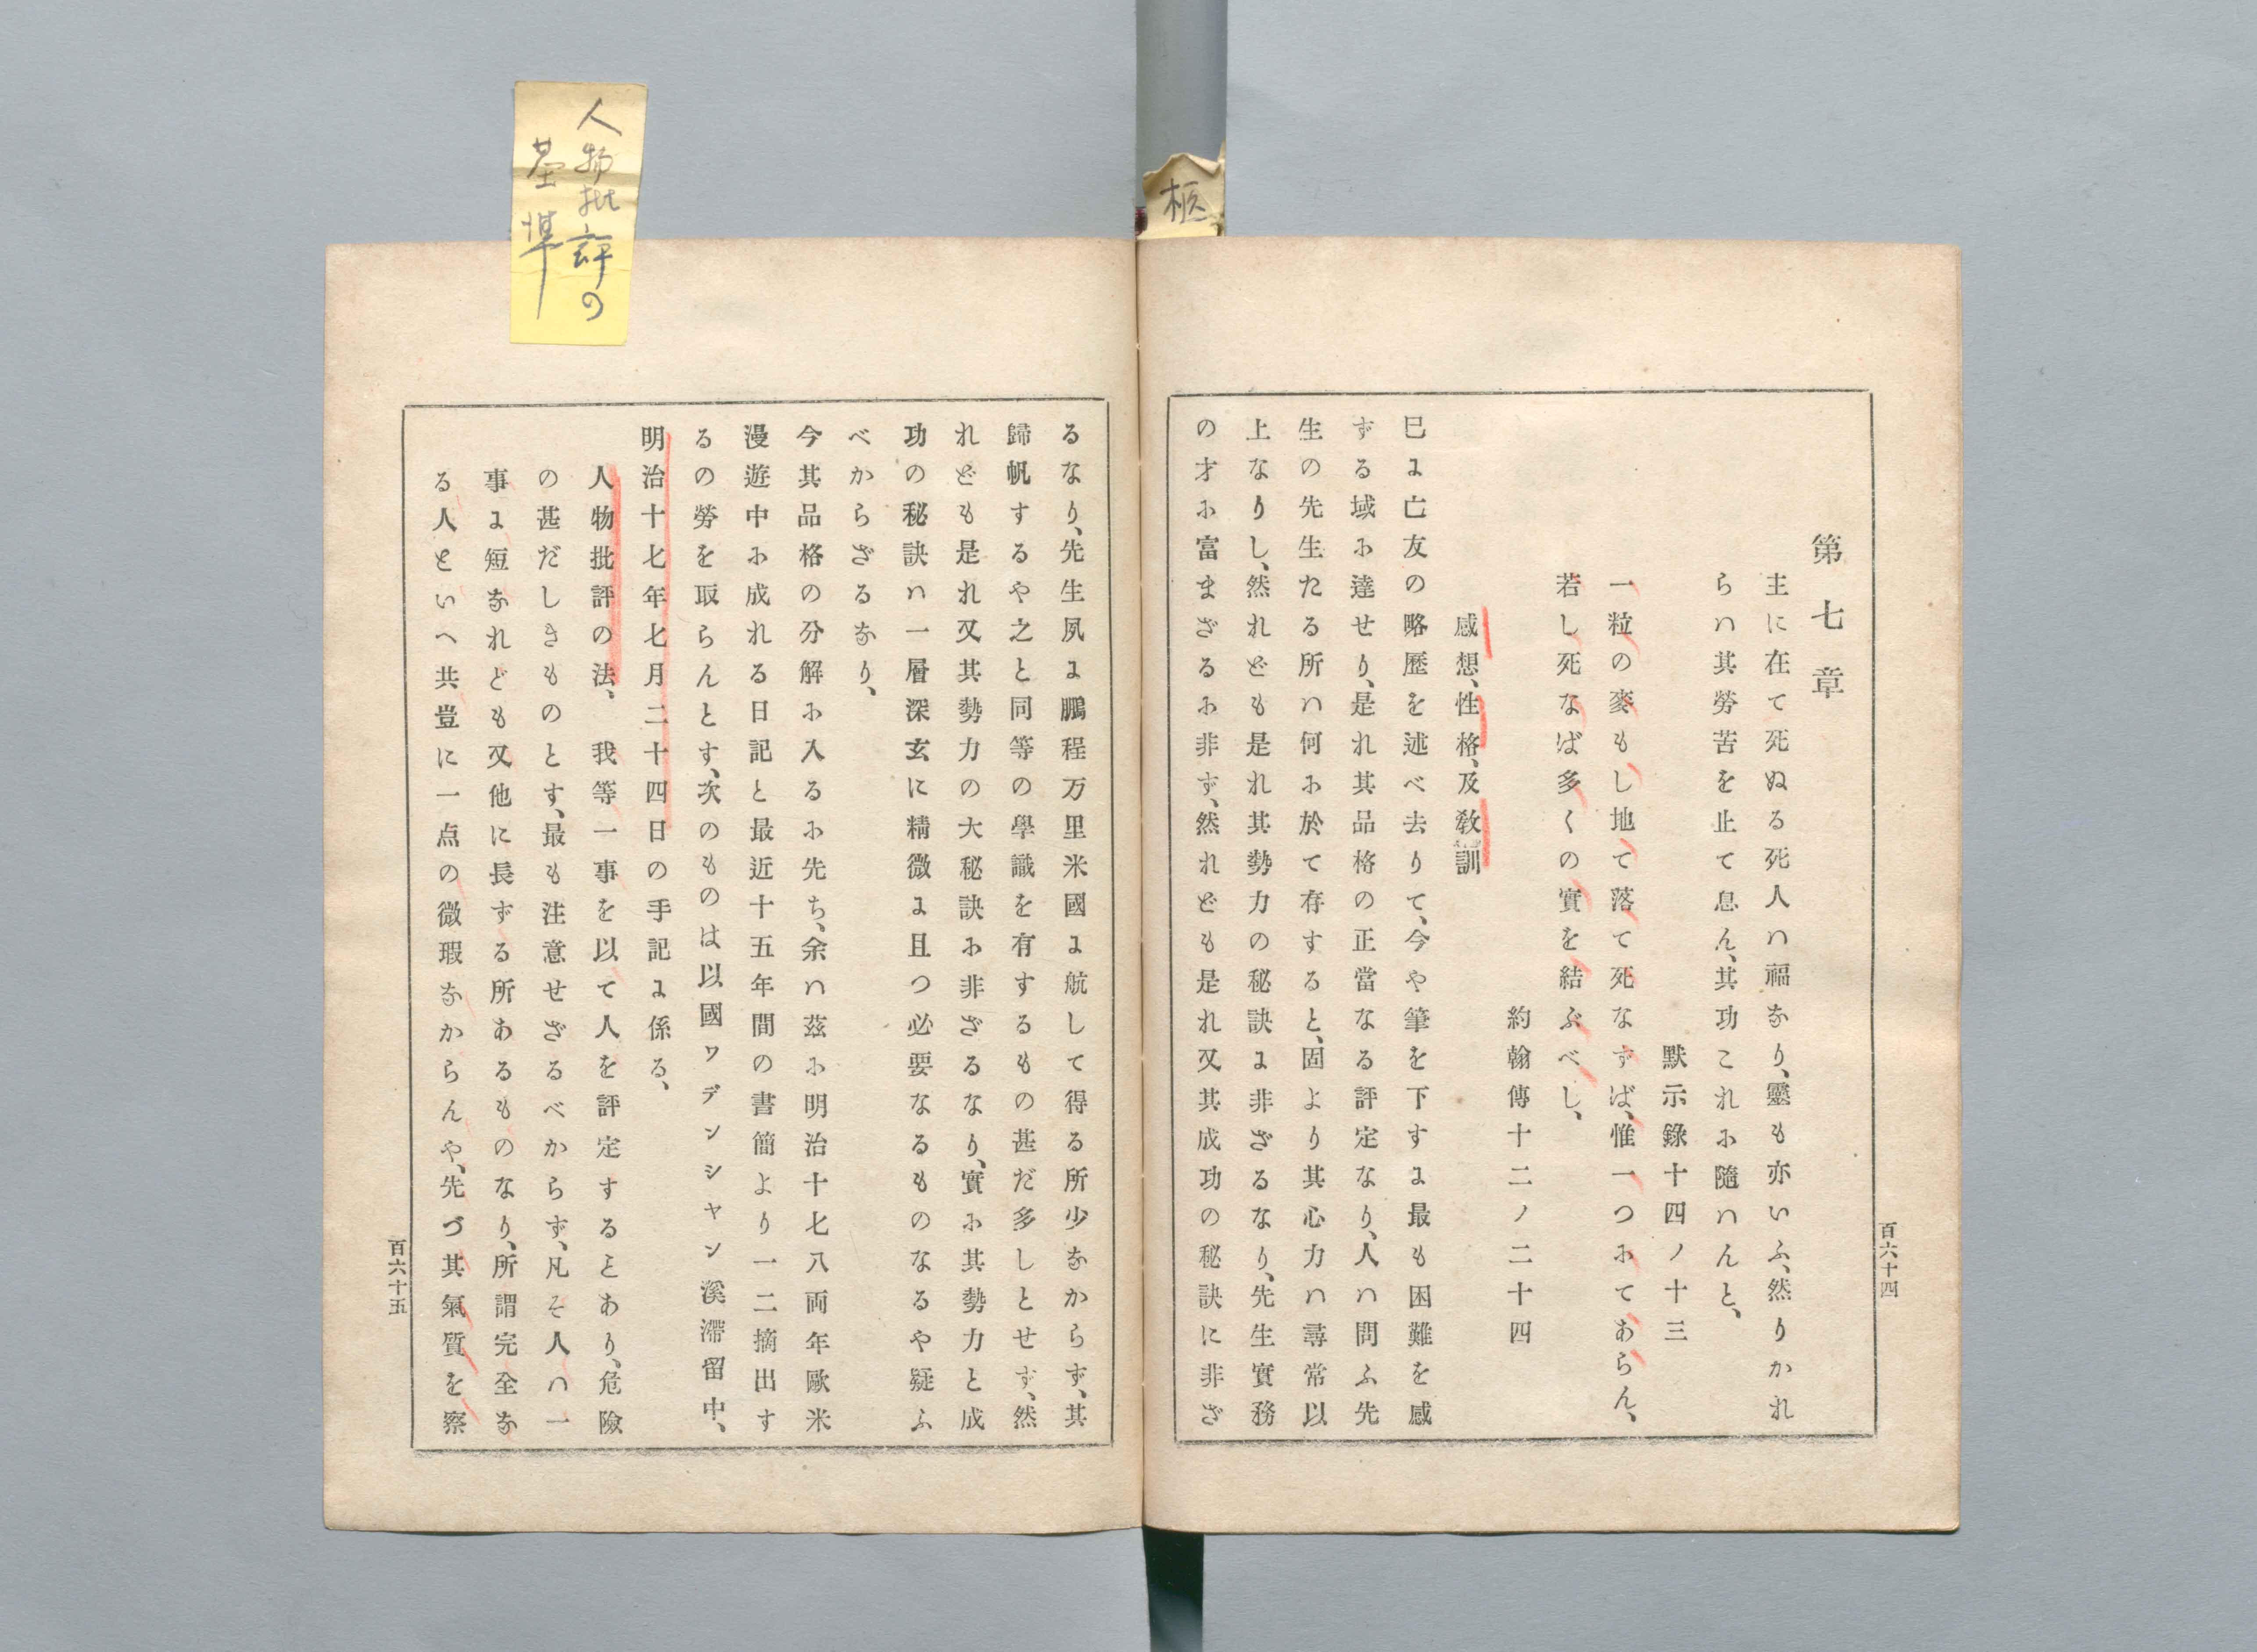 人物批評の
基準
柩
第七章
主に在て死ぬる死人ハ福なり、靈も亦いふ、然りかれ
らハ其勞苦を止て息ん、其功これに隨ハんと、
默示錄十四ノ十三
一粒の麥もし地て落て死なずば、惟一つにてあらん、
若し死なば多くの實を結ぶべし、
約翰傳十二ノ二十四
感想、性格、及敎訓
巳に亡友の略歷を述べ去りて、今や筆を下すに最も困難を感
ずる域に達せり、是れ其品格の正當なる評定なり、人ハ問ふ先
生の先生たる所ハ何に於て存すると、固より其心力ハ尋常以
上なりし、然れども是れ其勢力の秘訣に非ざるなり、先生實務
の才に富まざるに非ず、然れども是れ又其成功の秘訣に非ざ
百六十四
るなり、先生夙に鵬程万里米國に航して得る所少なからず、其
歸帆するや之と同等の學識を有するもの甚だ多しとせず、然
れども是れ又其勢力の大秘訣に非ざるなり、實に其勢力と成
功の秘訣ハ一層深玄に精微に且つ必要なるものなるや疑ふ
べからざるなり、
今其品格の分解に入るに先ち、余ハ茲に明治十七八両年歐米
漫遊中に成れる日記と最近十五年間の書簡より一二摘出す
るの勞を取らんとす、次のものは以國ワデンシヤン溪滯留中、
明治十七年七月二十四日の手記に係る、
人物批評の法、　我等一事を以て人を評定するとあり、危險
の甚だしきものとす、最も注意せざるべからず、凡そ人ハ一
事に短なれども又他に長ずる所あるものなり、所謂完全な
る人といへ共豈に一点の微瑕なからんや、先づ其氣質を察
百六十五